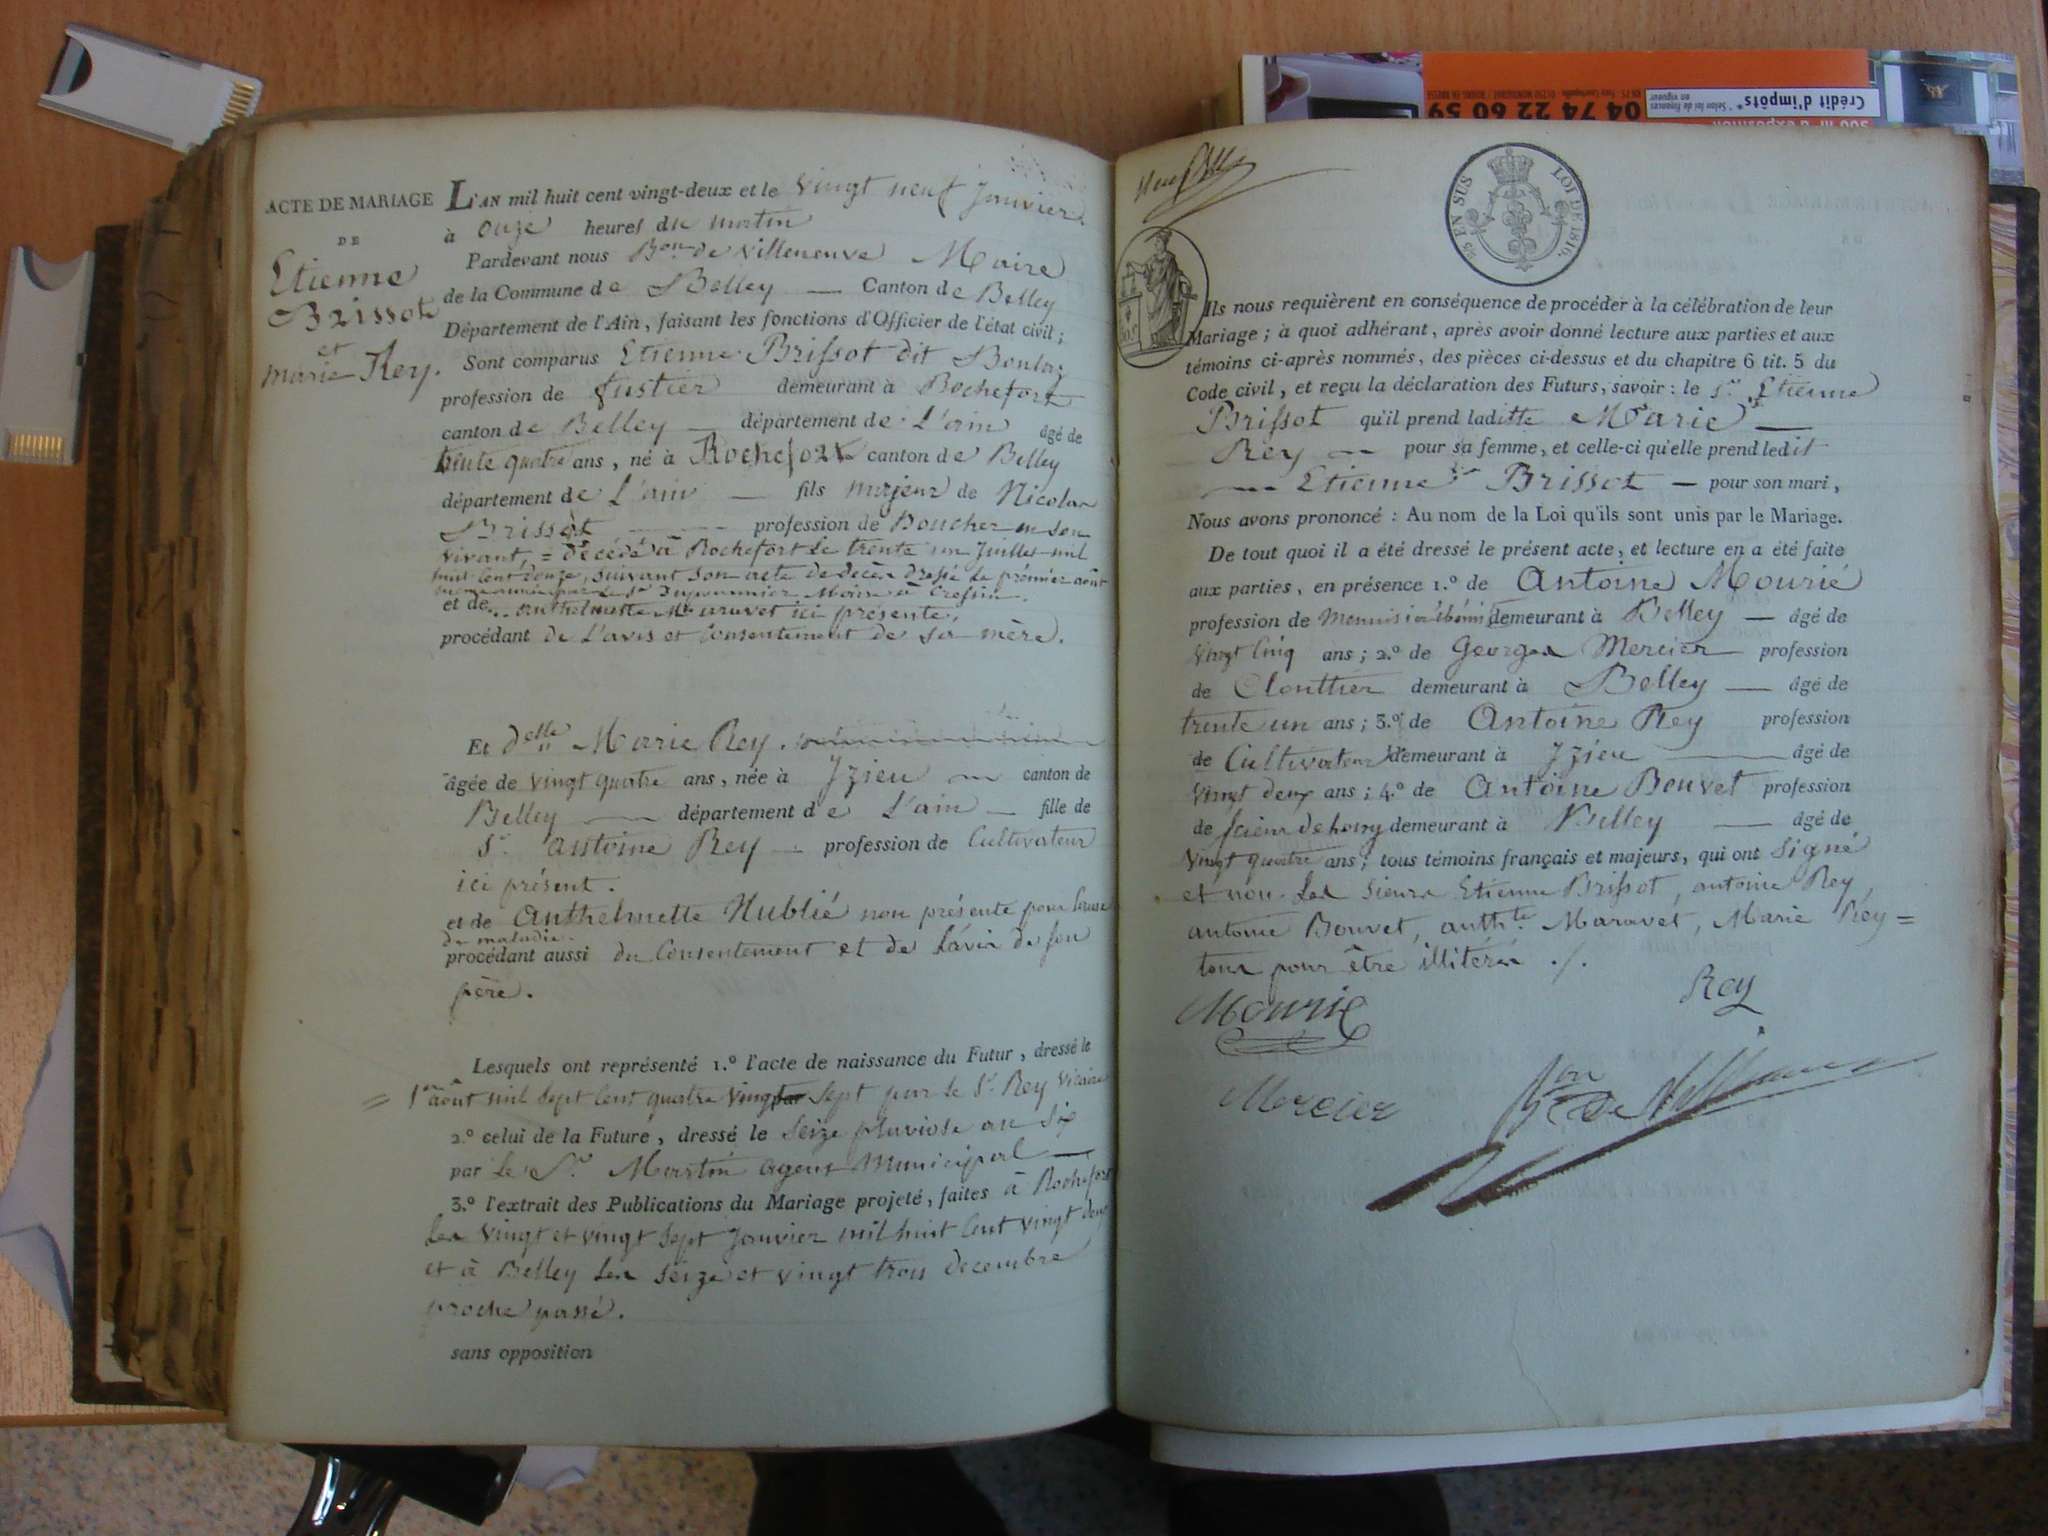 ACTE DE MARIAGE
DE
Etienne
Brissot
et
marie Rey.
L'AN mil huit cent vingt-deux et le vingt neuf Janvier
à onze heures du matin
Pardevant nous Bon. de Villeneuve Maire
de la Commune de Belley — Canton de Belley
Département de l'Ain, faisant les fonctions d'Officier de l'état civil;
Sont comparus Etienne Brissot dit Boulaz
profession de fustier demeurant à Rochefort
canton de Belley — département de L'ain âgé de
trente quatre ans, né à Rochefort canton de Belley
département de L'ain — fils majeur de Nicolas
Brissot — profession de Boucher en son
vivant, = décédé à Rochefort le trente un Juillet mil
huit Cent douze, suivant son acte de décès dressé le prémier août
même année par le Sr Maire à Cressin.
et de anthelmette Maruvet ici présente,
procédant de L'avis et Consentement de sa mère.
Et delle Marie Rey.
âgée de vingt quatre ans, née à Izieu — canton de
Belley — département de L'ain — fille de
Sr. antoine Rey — profession de Cultivateur
ici présent.
et de Anthelmette Hublié non présente pour Cause
de maladie.
procédant aussi du Consentement et de L'avis de son
père.
Lesquels ont représenté 1.º l'acte de naissance du Futur, dressé le
= 1er août mil Sept Cent quatre vingt Sept par le Sr. Rey Vicaire
2.º celui de la Future, dressé le Seize pluviose an Six
par Le Sr. Martin agent Municipal —
3.º l'extrait des Publications du Mariage projeté, faites à Rochefort
Les vingt et vingt Sept Janvier mil huit Cent vingt deux
et à Belley Les Seize et vingt trois decembre
proche passé.
sans opposition
EN SUS LOI DE 1816.
Ils nous requièrent en conséquence de procéder à la célébration de leur
Mariage; à quoi adhérant, après avoir donné lecture aux parties et aux
témoins ci-après nommés, des pièces ci-dessus et du chapitre 6 tit. 5 du
Code civil, et reçu la déclaration des Futurs, savoir: le Sr. Etienne
Brissot qu'il prend laditte Marie —
Rey — pour sa femme, et celle-ci qu'elle prend ledit
— Etienne Brissot — pour son mari,
Nous avons prononcé: Au nom de la Loi qu'ils sont unis par le Mariage.
De tout quoi il a été dressé le présent acte, et lecture en a été faite
aux parties, en présence 1.º de Antoine Mourié
profession de Menuisier demeurant à Belley — âgé de
Vingt Cinq ans; 2.º de Georges Mercier profession
de Clouttier demeurant à Belley — âgé de
trente un ans; 3.º de Antoine Rey profession
de Cultivateur demeurant à Izieu — âgé de
Vingt deux ans; 4.º de Antoine Bouvet profession
de scieur de long demeurant à Belley — âgé de
Vingt quatre ans; tous témoins français et majeurs, qui ont Signé
et non Les Sieurs Etienne Brissot, antoine Rey,
antoine Bouvet, anthte. Maruvet, Marie Rey =
tous pour être illitérés ./.
Mourié
Rey
Mercier
Bon de Villeneuve
04 74 22 60 59
Crédit d'impôts*
* Selon loi de finances
en vigueur